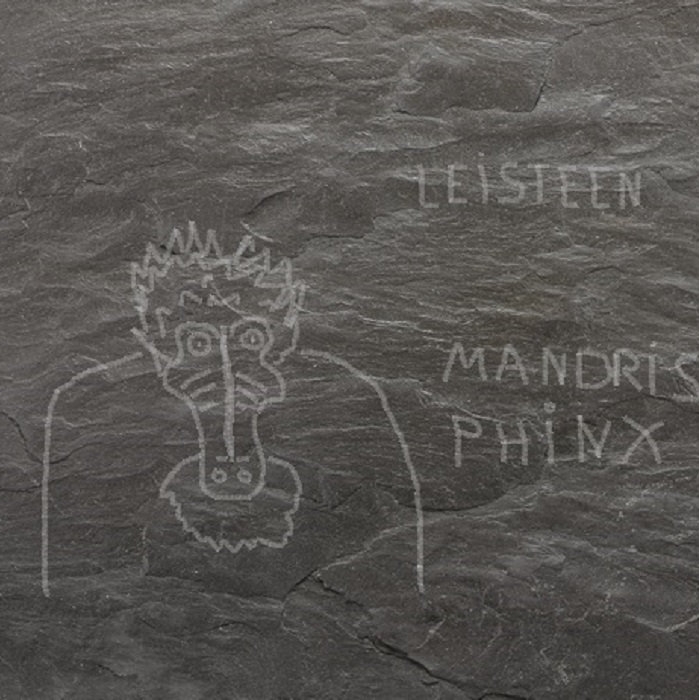 LEiSTEEN
MANDRiS
PHiNX